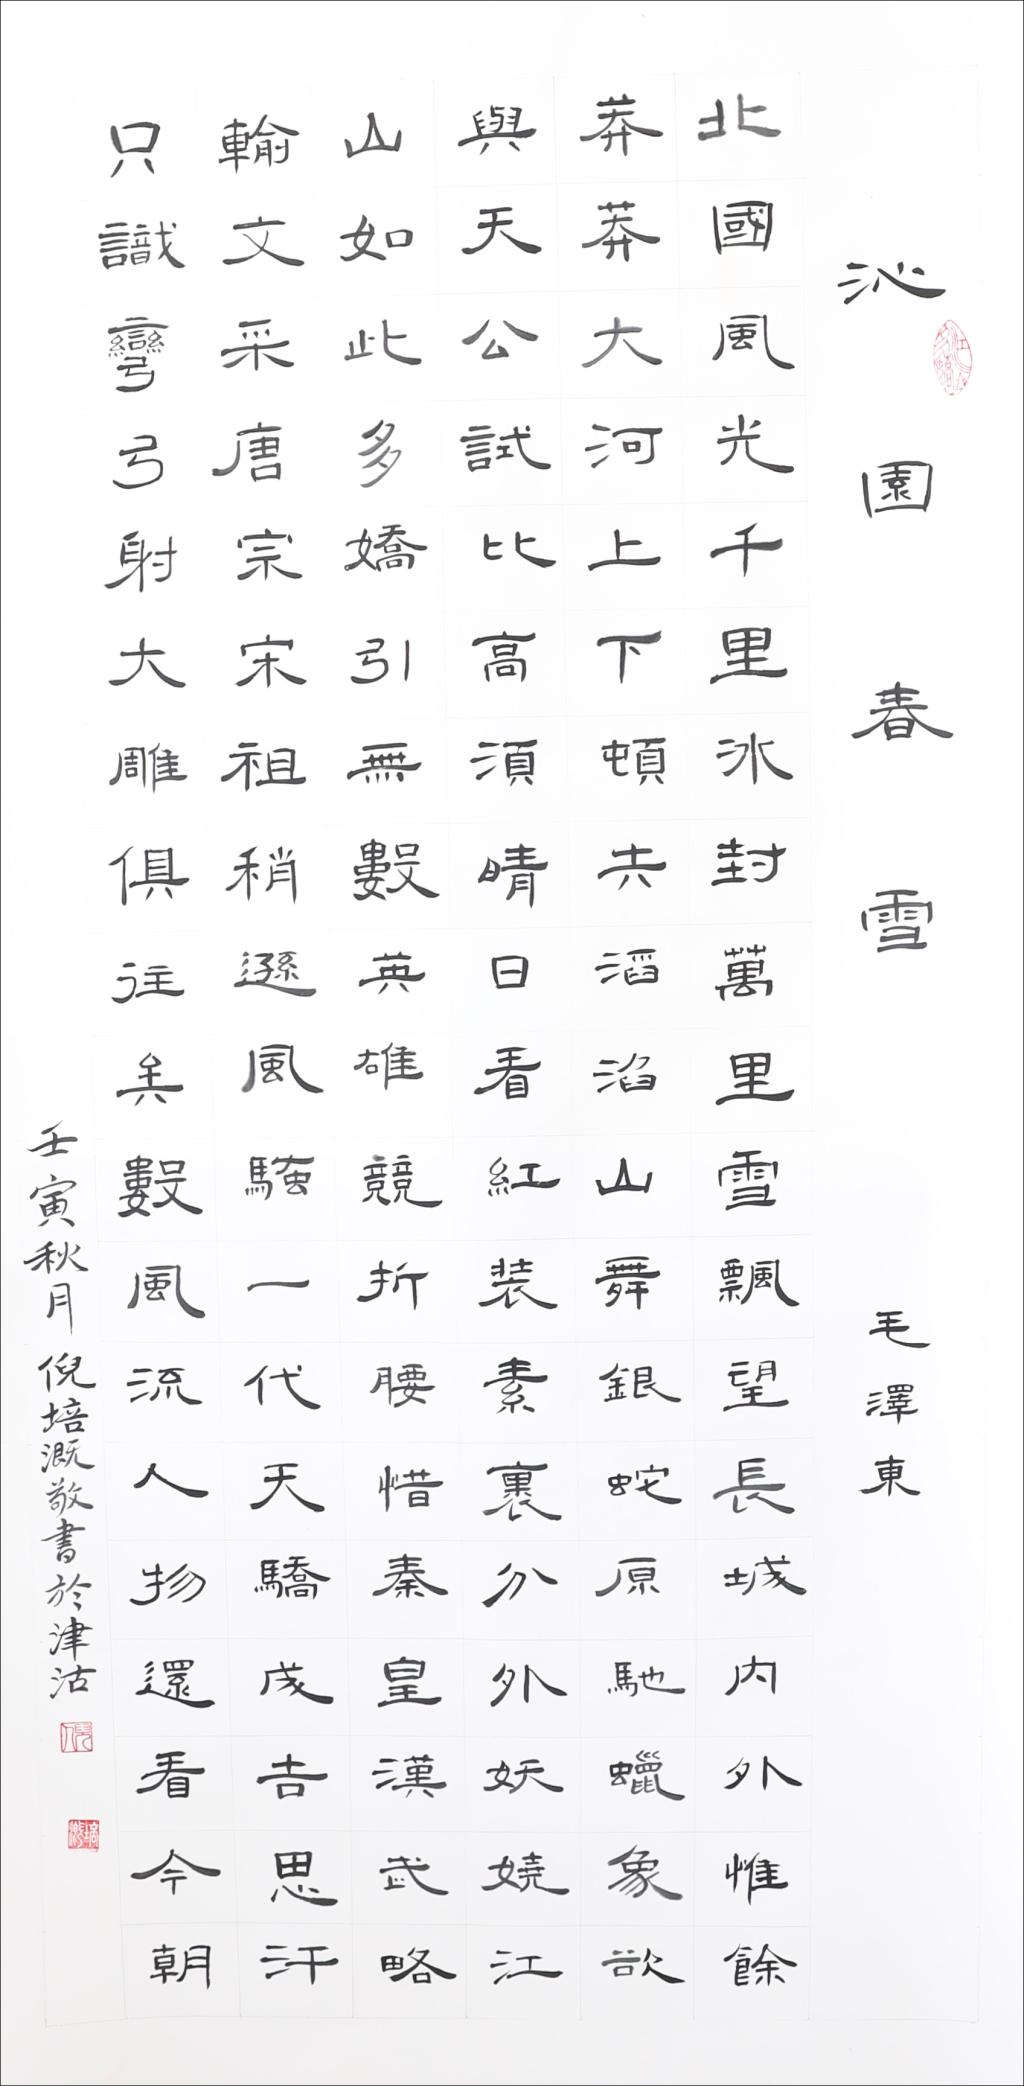 沁園春雪 毛澤東
北國風光千里冰封萬里雪飄望長城内外惟餘
莽莽大河上下頓去滔滔山舞銀蛇原馳蠟象欲
與天公試比高須晴日看紅装素裹分外妖嬈江
山如此多嬌引無數英雄競折腰惜秦皇漢武略
輸文采唐宗宋祖稍遜風騷一代天驕成吉思汗
只識彎弓射大雕俱往矣數風流人物還看今朝
壬寅秋月倪培溉敬書於津沽